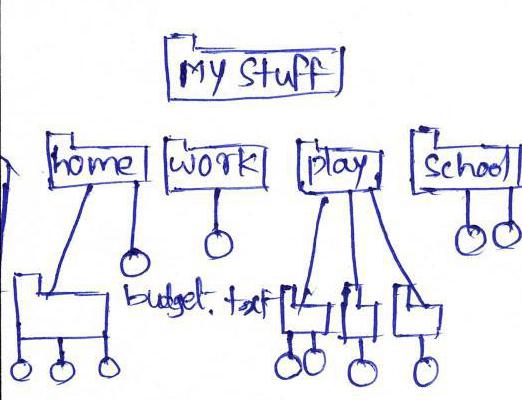 My Stuff
home work play school
budget. text